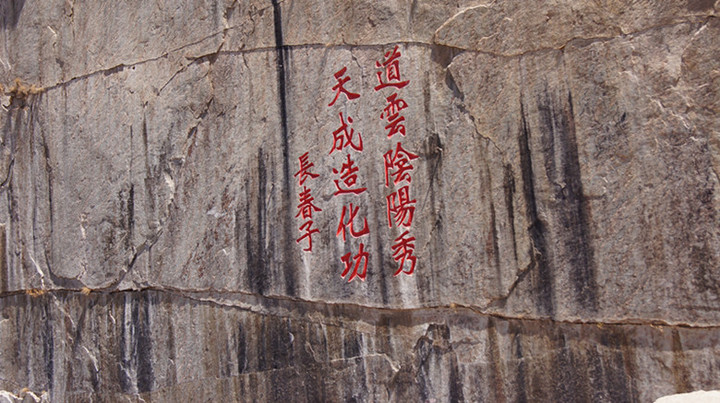 道雲陰陽秀
天成造化功
長春子